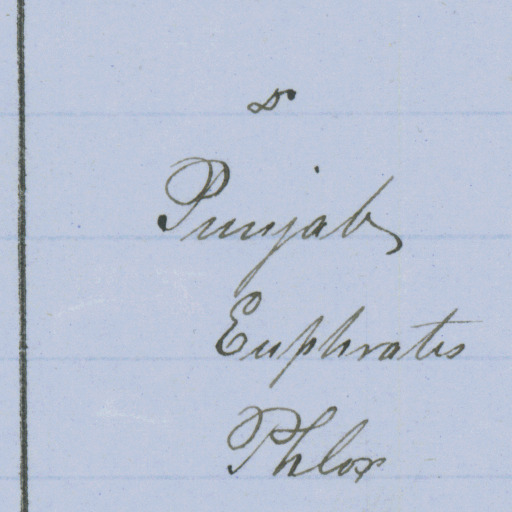 Punjab
Euphrates
Phlox